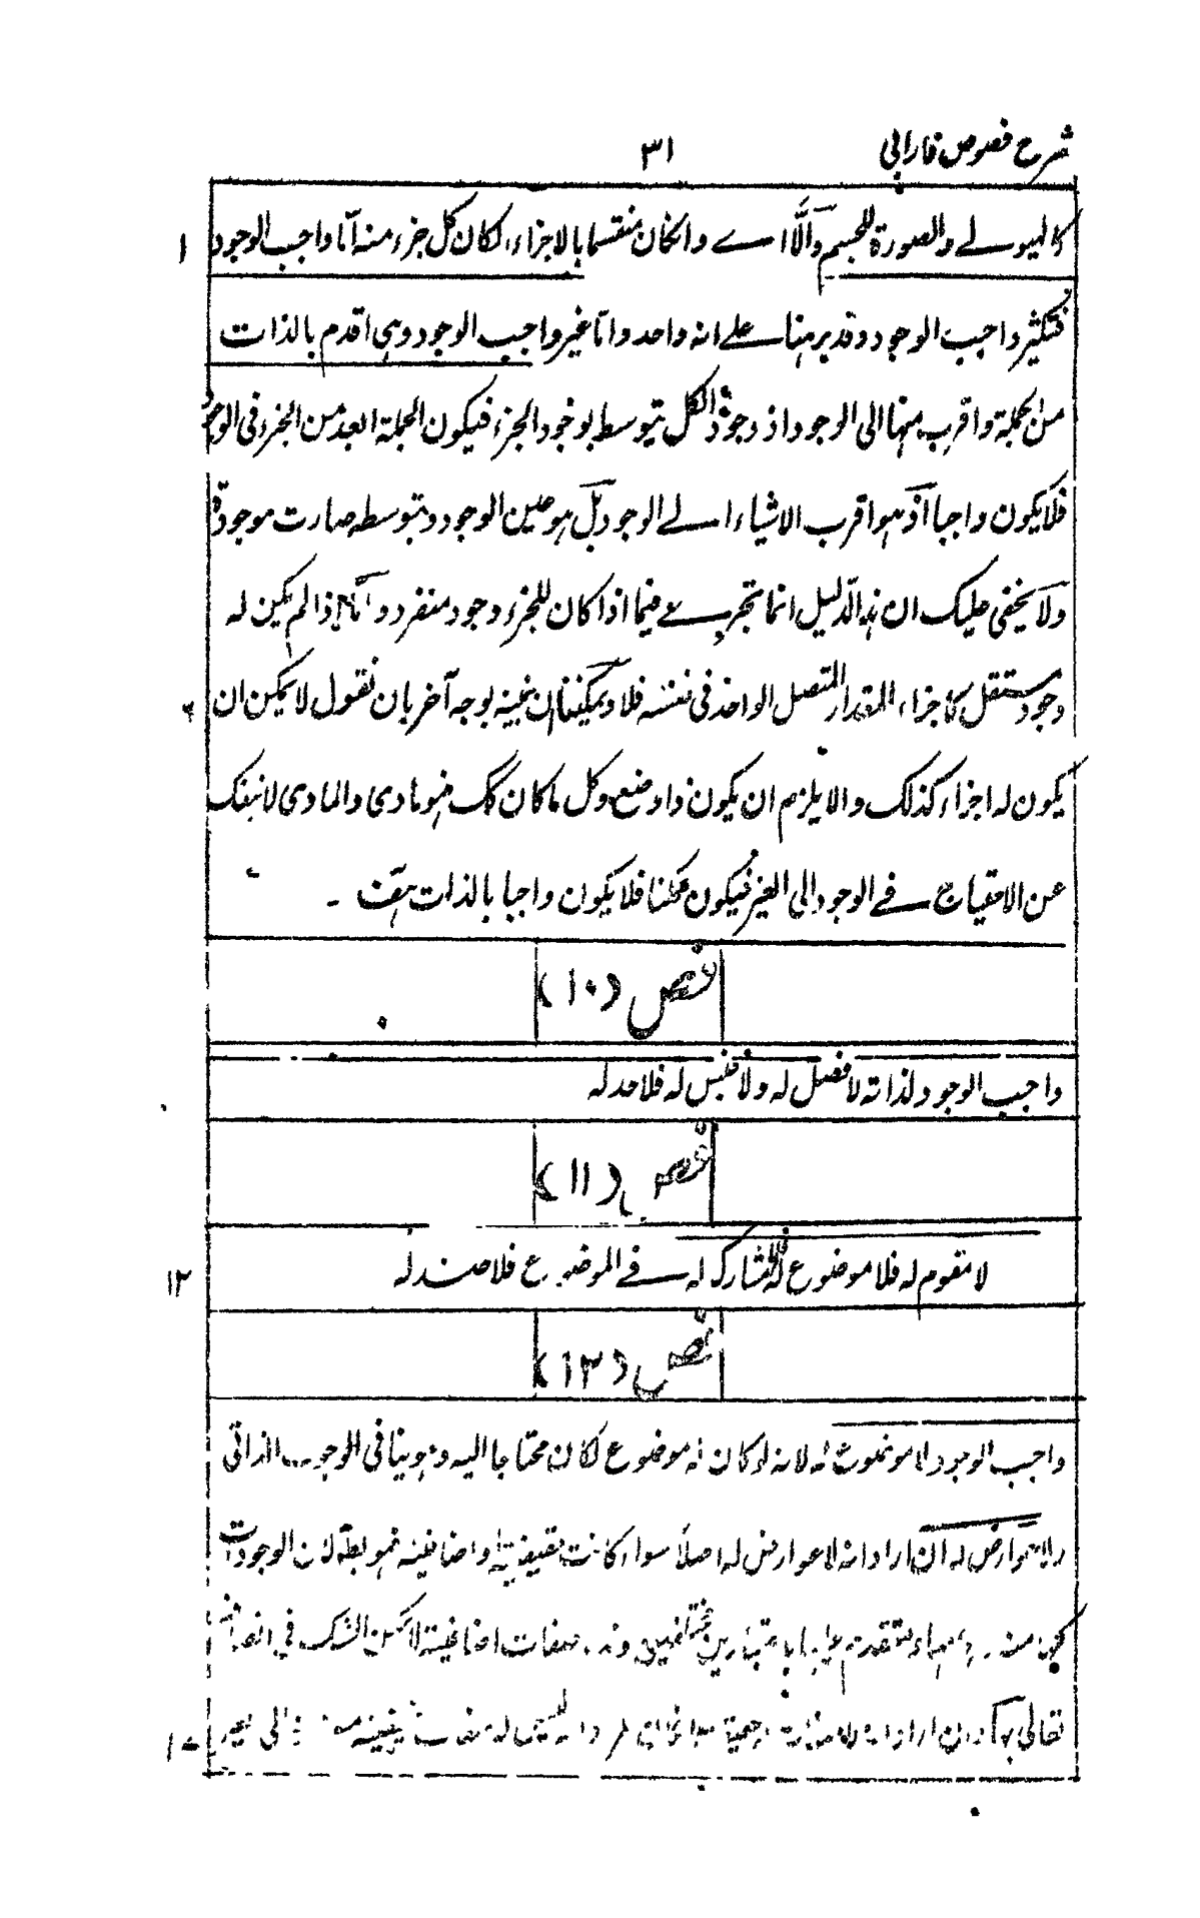 شرح فصوص فارابی
٣١
كالهيولے والصورة للجسم وَالَّا اے وانكان منقسما بالاجزاء لكان كل جزء منه اما واجب الوجود
١
فتكثر واجب الوجود وقد برهنا علے انه واحد واما غير واجب الوجود وهى اقدم بالذات
من الجملة واقرب منها الى الوجود اذ وجود الكل يتوسط بوجود الجزء فيكون الجملة ابعد من الجزء فى الوجود
فلا يكون واجبا اذ هو اقرب الاشياء الے الوجود بل هو عين الوجود وبتوسطه صارت موجودة
ولا يخفى عليك ان هذا الدليل انما تجرے فيما اذا كان للجزء وجود منفرد واما اذا لم يكن له
وجود مستقل كاجزاء المقدار المتصل الواحد فى نفسه فلا ويمكننا ان نبينه بوجه آخر بان نقول لا يمكن ان
٦
يكون له اجزاء كذلك والا يلزم ان يكون ذا وضع وكل ما كان كك فهو مادى والمادى لا ينفك
عن الاحتياج فے الوجود الى الغير فيكون ممكنا فلا يكون واجبا بالذات هف -
فص (١٠)
واجب الوجود لذاته لا فصل له ولا جنس له فلا حد له
فص (١١)
لا مقوم له فلا موضوع له فلا مشارك له فے الموضوع فلا ضد له
١٢
فص (١٢)
واجب الوجود لا موضوع له لانه لو كان له موضوع لكان محتاجا اليه وهو ينافى الوجوب الذاتى
ولا عوارض له ان اراد انه لا عوارض له اصلا سواء كانت حقيقية او اضافية فهو بط لان الوجودات
صفات اضافية لا يمكن الشك فى
تعالى بها وان اراد انه